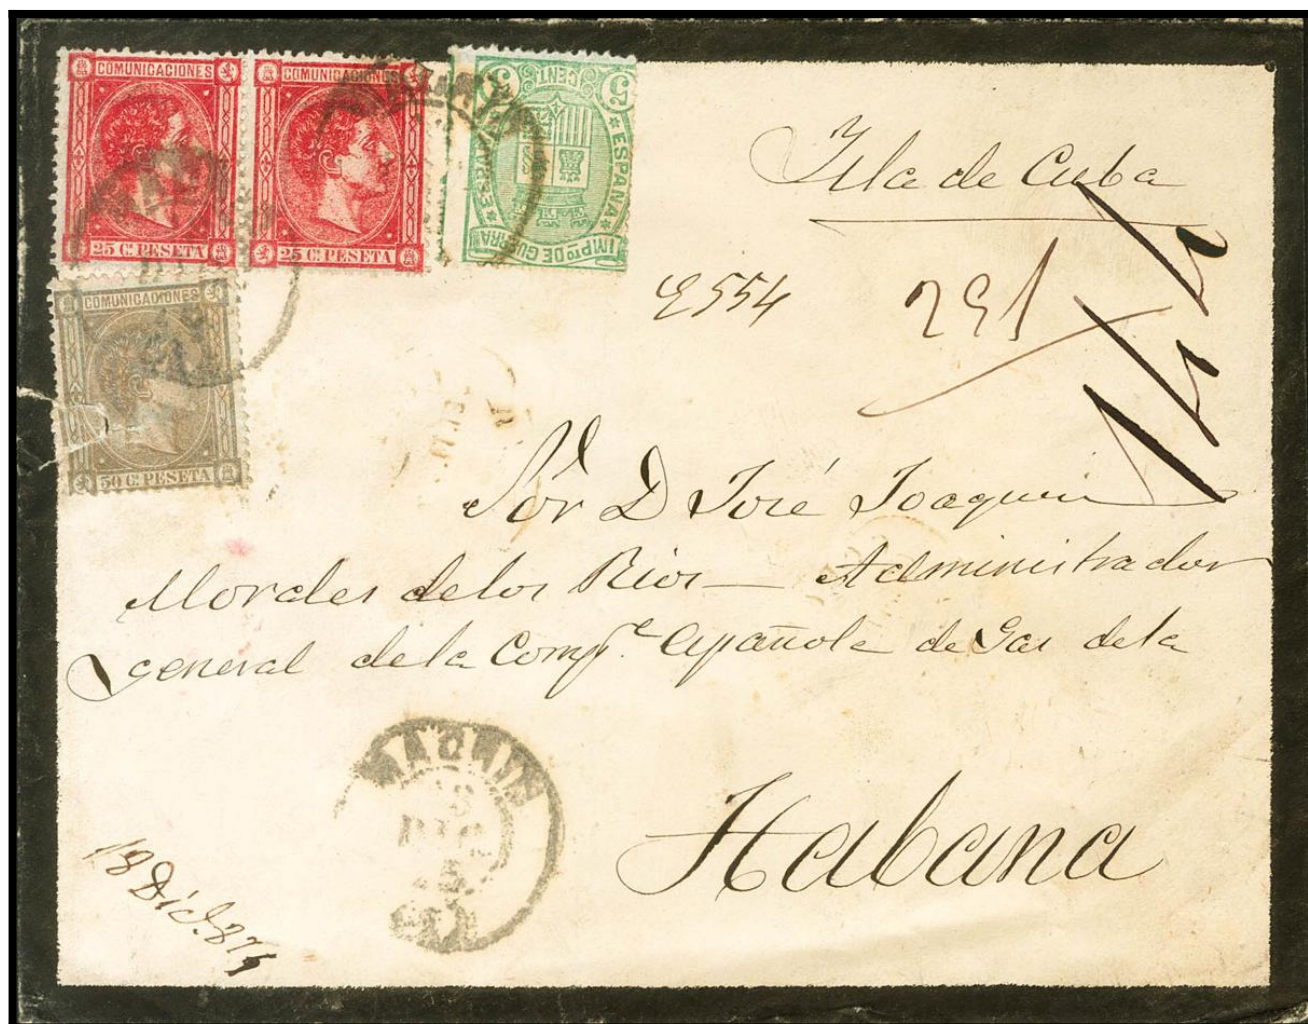 COMUNICACIONES
25 C. PESETA
COMUNICACIONES
25 C. PESETA
5 CENT. 5
ESPAÑA
IMPTO DE GUERRA
COMUNICACIONES
50 C. PESETA
Isla de Cuba
291
Sor D José Joaquin
Morales de los Rios Administrador
general de la Compe. Española de Gas de la
Habana
DIC
18 Dic.